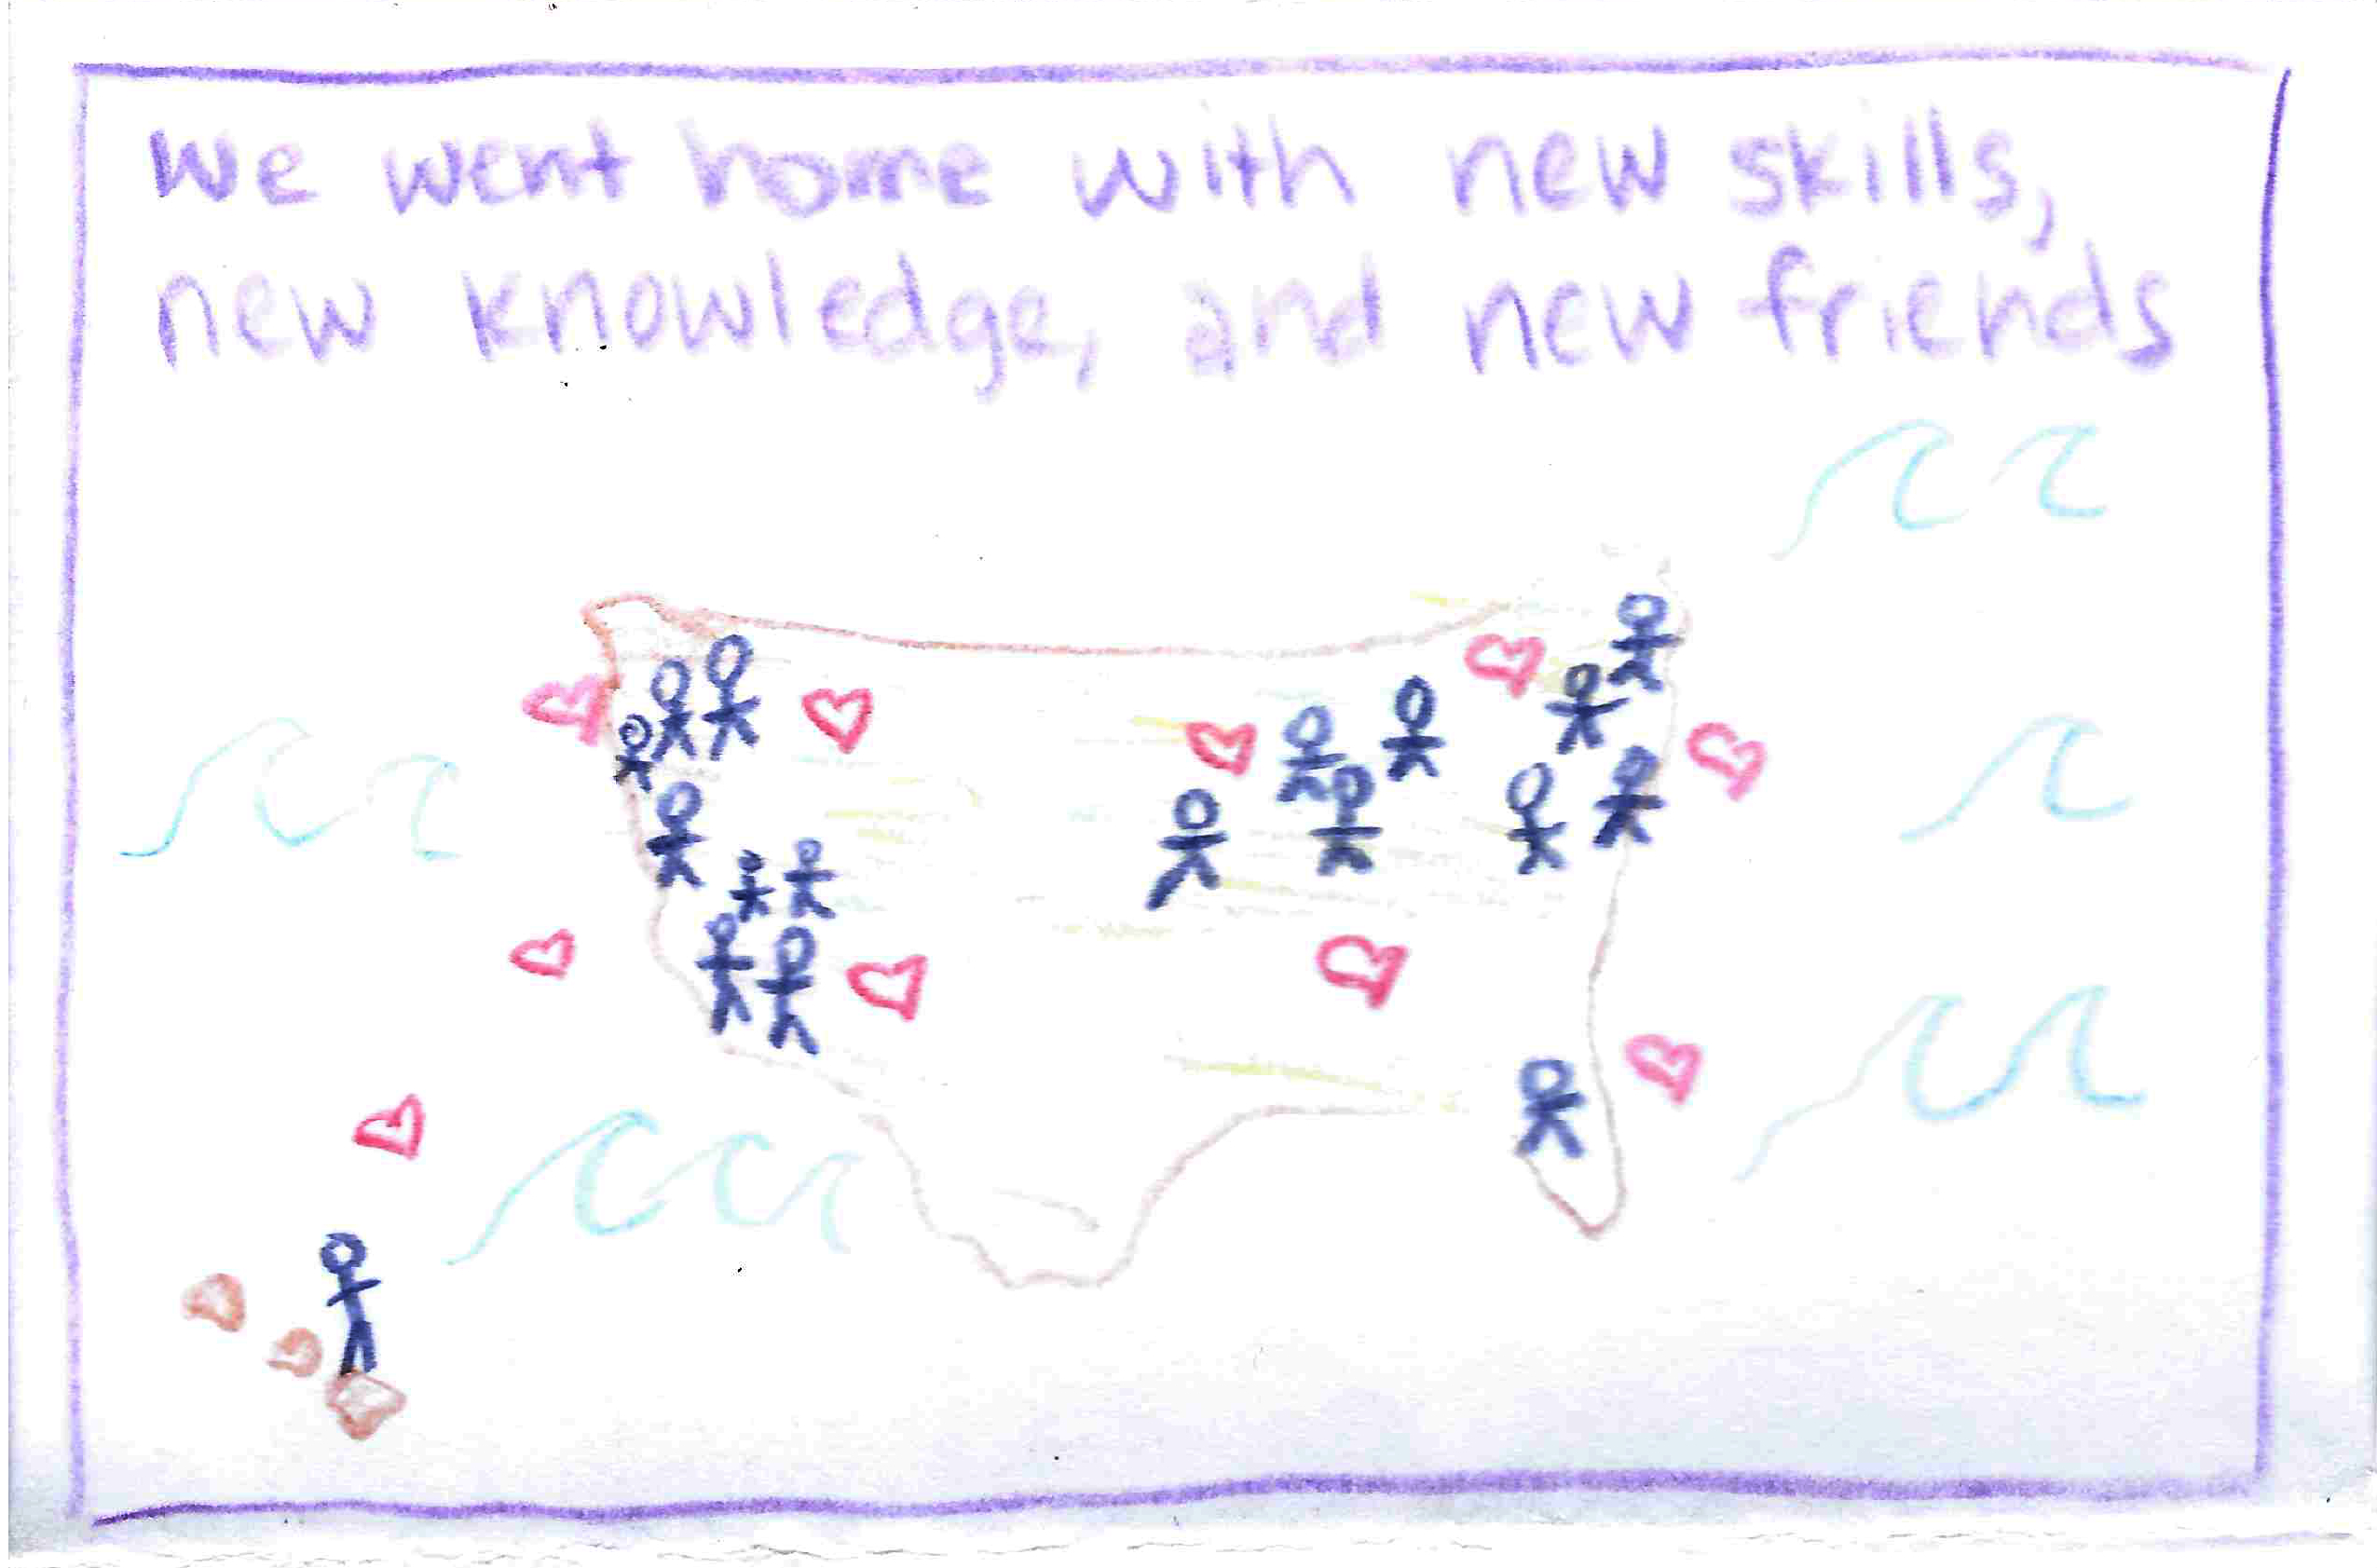 we went home with new skills,
new knowledge, and new friends